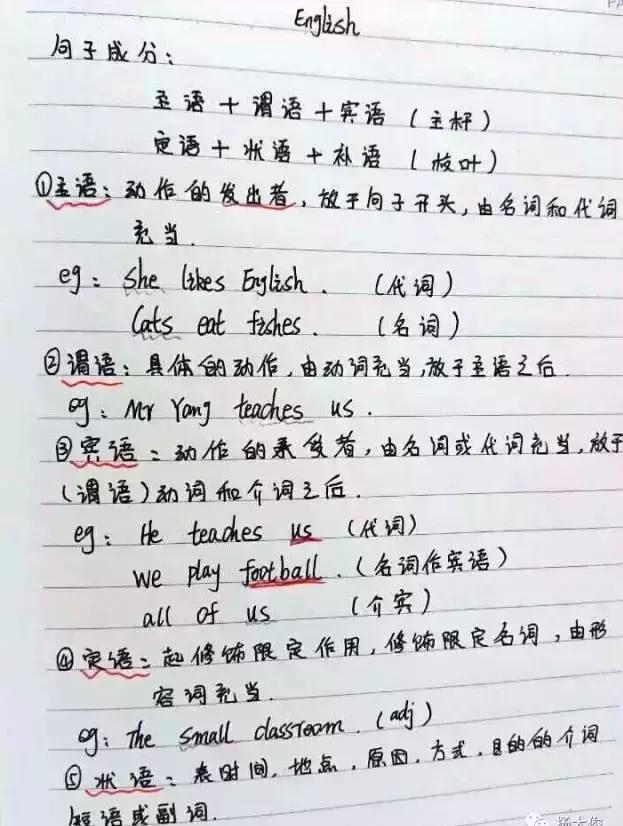 English
句子成分：
主语＋谓语＋宾语（主杆）
定语＋状语＋补语（枝叶）
①主语：动作的发出者，放于句子开头，由名词和代词
充当．
eg：She likes English．（代词）
Cats eat fishes．（名词）
②谓语：具体的动作，由动词充当，放于主语之后．
eg：Mr Yang teaches us．
③宾语：动作的承受者，由名词或代词充当，放于
（谓语）动词和介词之后．
eg：He teaches us（代词）
we play football．（名词作宾语）
all of us （介宾）
④定语：起修饰限定作用，修饰限定名词，由形
容词充当．
eg：The small classroom．（adj）
⑤状语：表时间，地点，原因，方式，目的的介词
短语或副词．
杨大俊